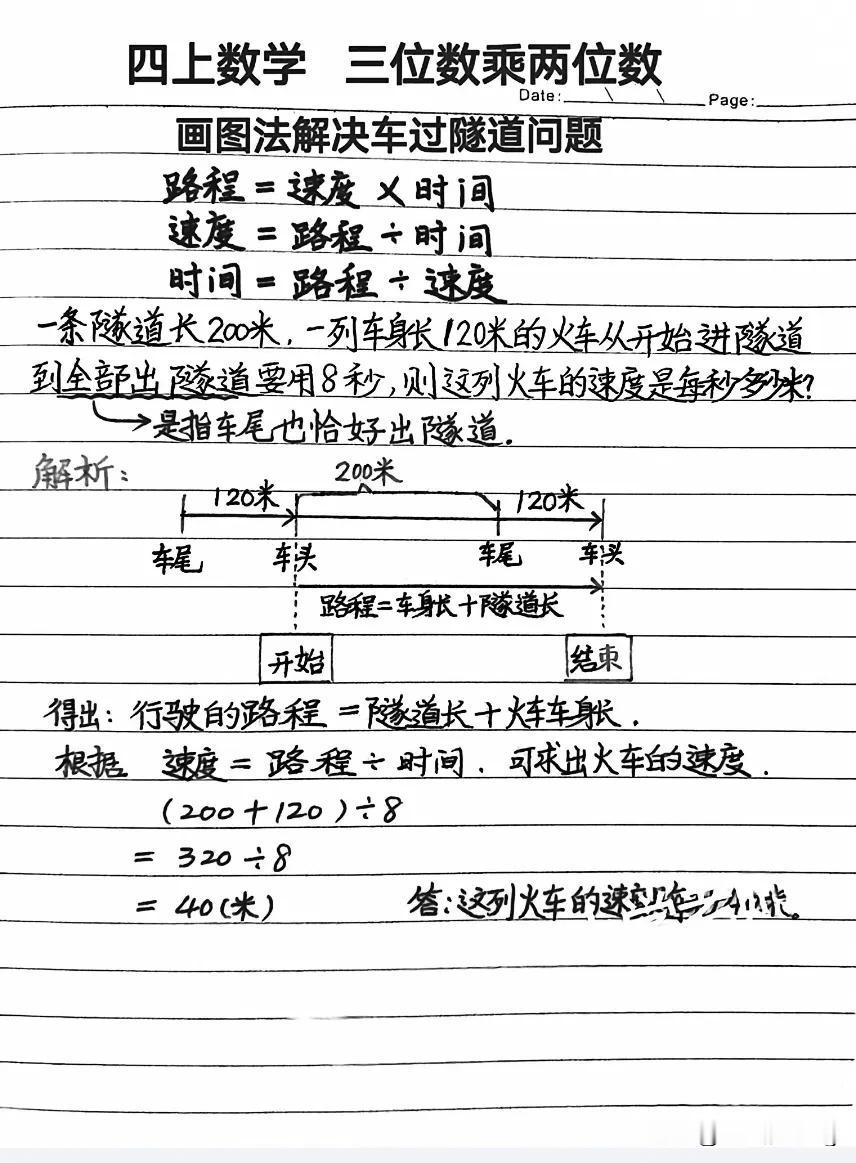 四上数学 三位数乘两位数
Date: \ \ Page:
画图法解决车过隧道问题
路程 = 速度 × 时间
速度 = 路程 ÷ 时间
时间 = 路程 ÷ 速度
一条隧道长200米,一列车身长120米的火车从开始进隧道
到全部出隧道要用8秒,则这列火车的速度是每秒多少米?
→是指车尾也恰好出隧道.
解析:
200米
120米 120米
车尾 车头 车尾 车头
路程=车身长+隧道长
开始 结束
得出: 行驶的路程 =隧道长+火车车身长.
根据 速度 = 路程 ÷ 时间. 可求出火车的速度.
(200+120)÷8
= 320÷8
= 40(米) 答:这列火车的速